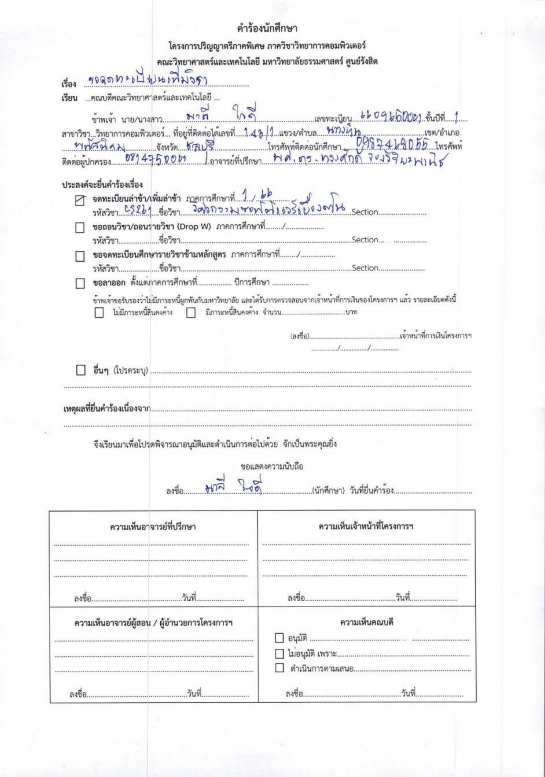 คำร้องนักศึกษา
โครงการปริญญาตรีภาคพิเศษ ภาควิชาวิทยาการคอมพิวเตอร์
คณะวิทยาศาสตร์และเทคโนโลยี มหาวิทยาลัยธรรมศาสตร์ ศูนย์รังสิต
เรื่อง ขอจดทะเบียนเพิ่มวิชา
เรียน ...คณบดีคณะวิทยาศาสตร์และเทคโนโลยี ...
ข้าพเจ้า นาย/นางสาว มาดี ใจดี เลขทะเบียน ชั้นปีที่ 1
สาขาวิชา...วิทยาการคอมพิวเตอร์... ที่อยู่ที่ติดต่อได้เลขที่ แขวง/ตำบล เขต/อำเภอ
จังหวัด ชลบุรี โทรศัพท์ติดต่อนักศึกษา โทรศัพท์
ติดต่อผู้ปกครอง อาจารย์ที่ปรึกษา ผศ.ดร.ทรงศักดิ์ รองวิริยะพานิช
ประสงค์จะยื่นคำร้องเรื่อง
จดทะเบียนล่าช้า/เพิ่มล่าช้า ภาคการศึกษาที่ 1 / 66
รหัสวิชา ชื่อวิชา วิศวกรรมซอฟต์แวร์เบื้องต้น Section
ขอถอนวิชา/ถอนรายวิชา (Drop W) ภาคการศึกษาที่......../........
รหัสวิชา............ชื่อวิชา............Section............
ขอจดทะเบียนศึกษารายวิชาข้ามหลักสูตร ภาคการศึกษาที่......../........
รหัสวิชา............ชื่อวิชา............Section............
ขอลาออก ตั้งแต่ภาคการศึกษาที่............ ปีการศึกษา ............
ข้าพเจ้าขอรับรองว่าไม่มีภาระหนี้ผูกพันกับมหาวิทยาลัย และได้รับการตรวจสอบจากเจ้าหน้าที่การเงินของโครงการฯ แล้ว รายละเอียดดังนี้
ไม่มีภาระหนี้สินคงค้าง มีภาระหนี้สินคงค้าง จำนวน............บาท
(ลงชื่อ)............เจ้าหน้าที่การเงินโครงการฯ
............/............/............
อื่นๆ (โปรดระบุ) ............
เหตุผลที่ยื่นคำร้องเนื่องจาก............
จึงเรียนมาเพื่อโปรดพิจารณาอนุมัติและดำเนินการต่อไปด้วย จักเป็นพระคุณยิ่ง
ขอแสดงความนับถือ
ลงชื่อ มาดี ใจดี (นักศึกษา) วันที่ยื่นคำร้อง............
ความเห็นอาจารย์ที่ปรึกษา
ลงชื่อ............วันที่............
ความเห็นเจ้าหน้าที่โครงการฯ
ลงชื่อ............วันที่............
ความเห็นอาจารย์ผู้สอน / ผู้อำนวยการโครงการฯ
ลงชื่อ............วันที่............
ความเห็นคณบดี
อนุมัติ ............
ไม่อนุมัติ เพราะ............
ดำเนินการตามเสนอ............
ลงชื่อ............วันที่............